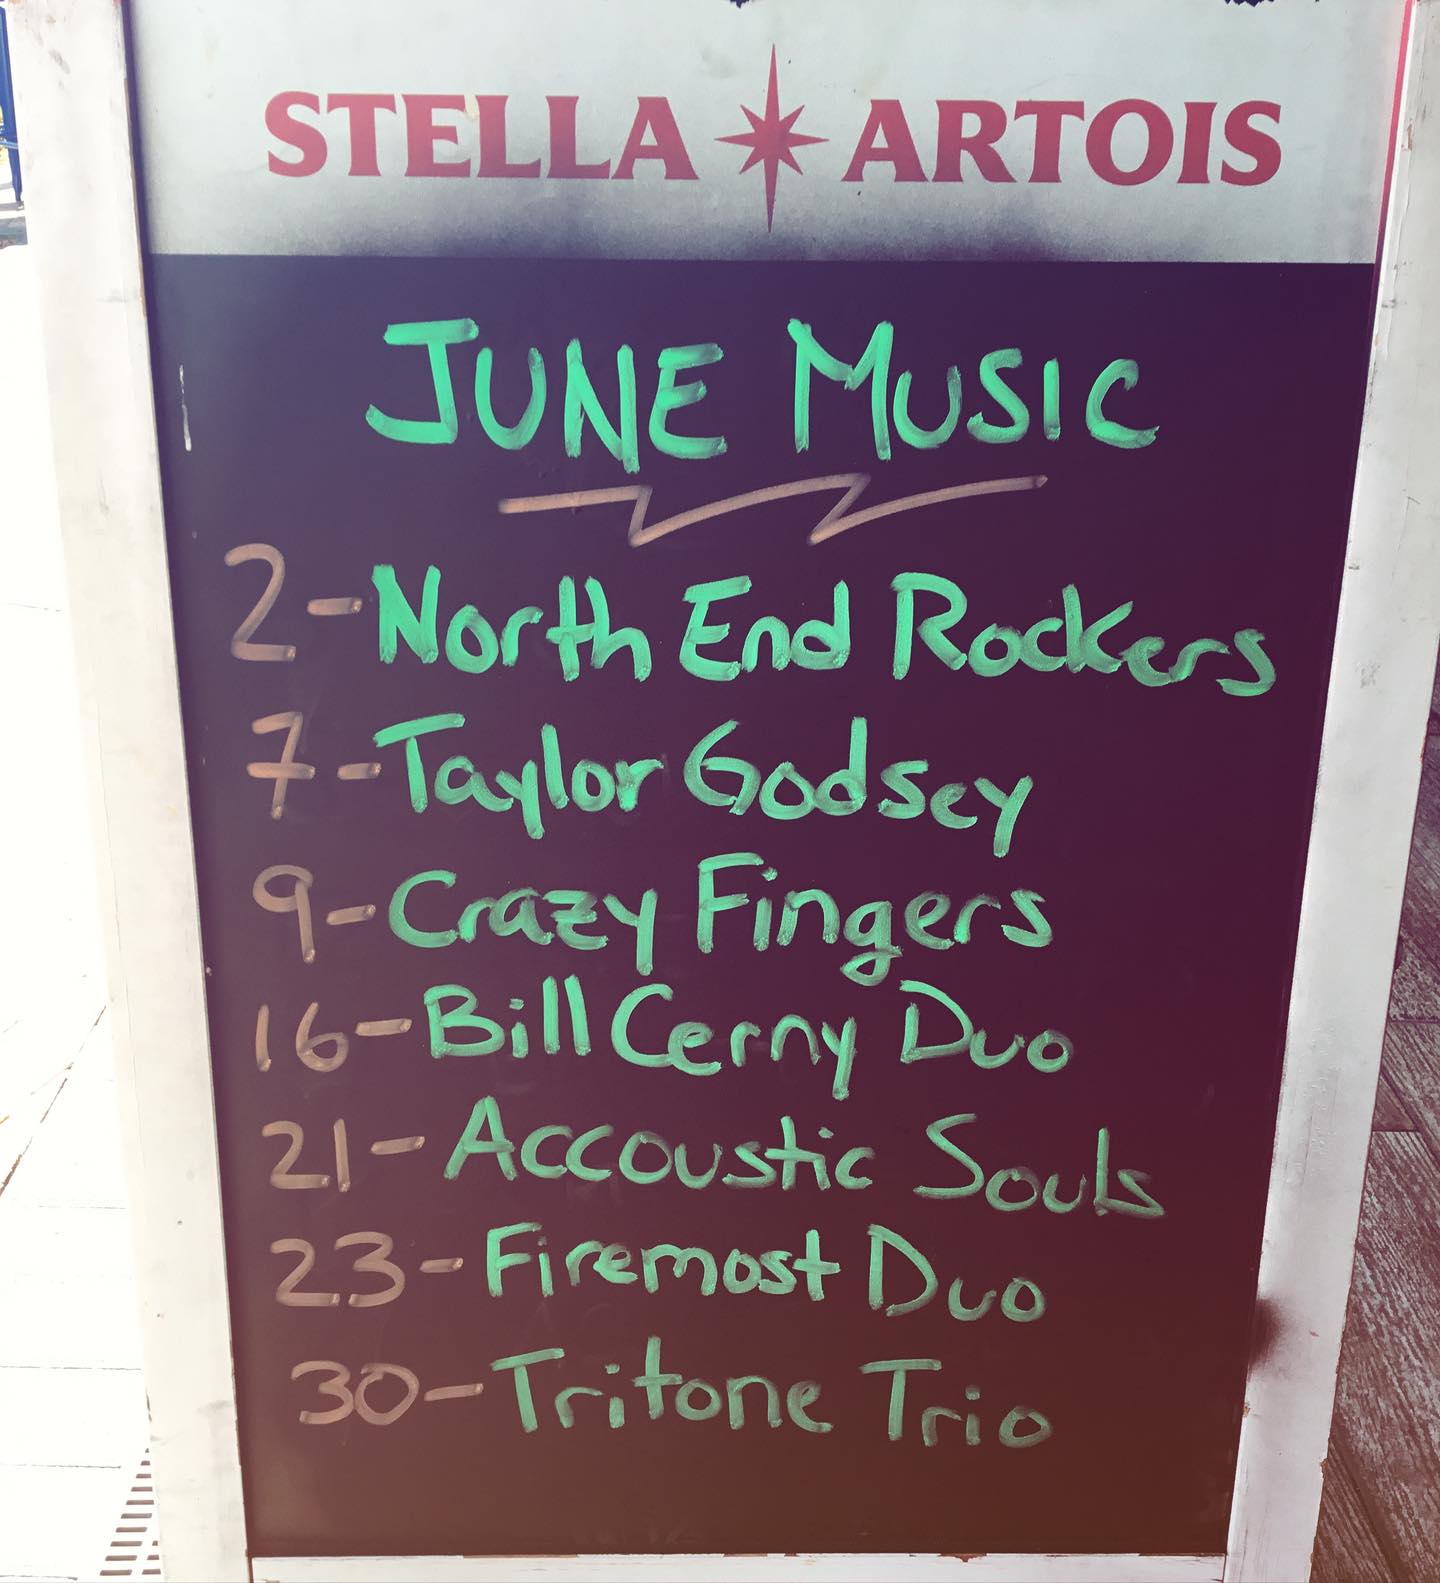 STELLA ARTOIS
JUNE MUSIC
2-North End Rockers
7-Taylor Godsey
9-Crazy Fingers
16-Bill Cerny Duo
21-Accoustic Souls
23-Firemost Duo
30-Tritone Trio